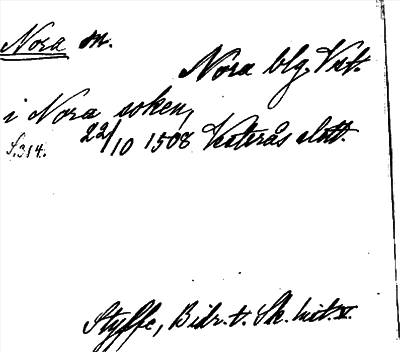 Nora sn.
Nora blg. Vstm.
i Nora soken,
S.314. 22/10 1508 Vesterås slott.
Styffe, Bidr. t. Sk. hist. V.